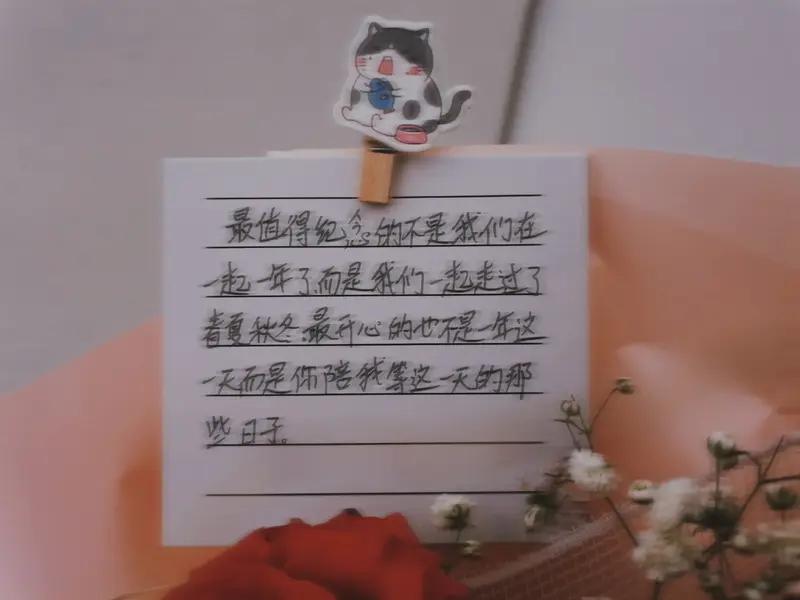 最值得纪念的不是我们在
一起一年了而是我们一起走过了
春夏秋冬.最开心的也不是一年这
一天而是你陪我等这一天的那
些日子。